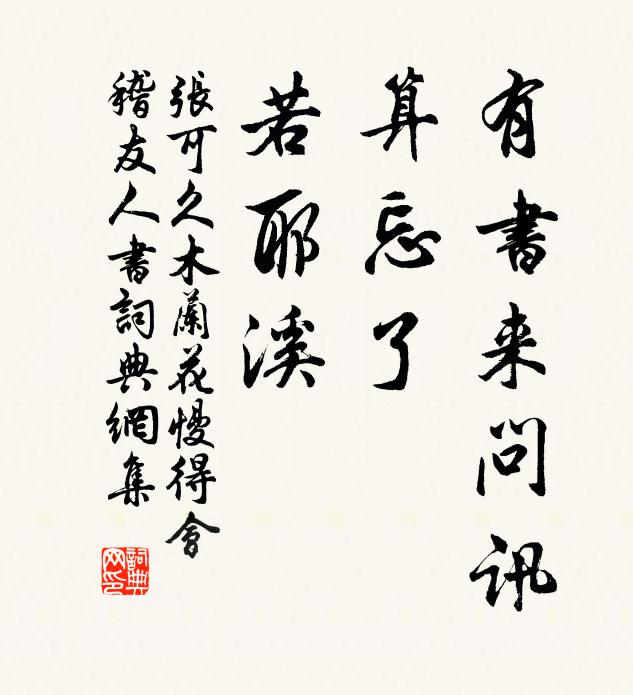 有書来問訊
算忘了
若耶溪
張可久木蘭花慢得會
稽友人書詞典網集
詞典
网印